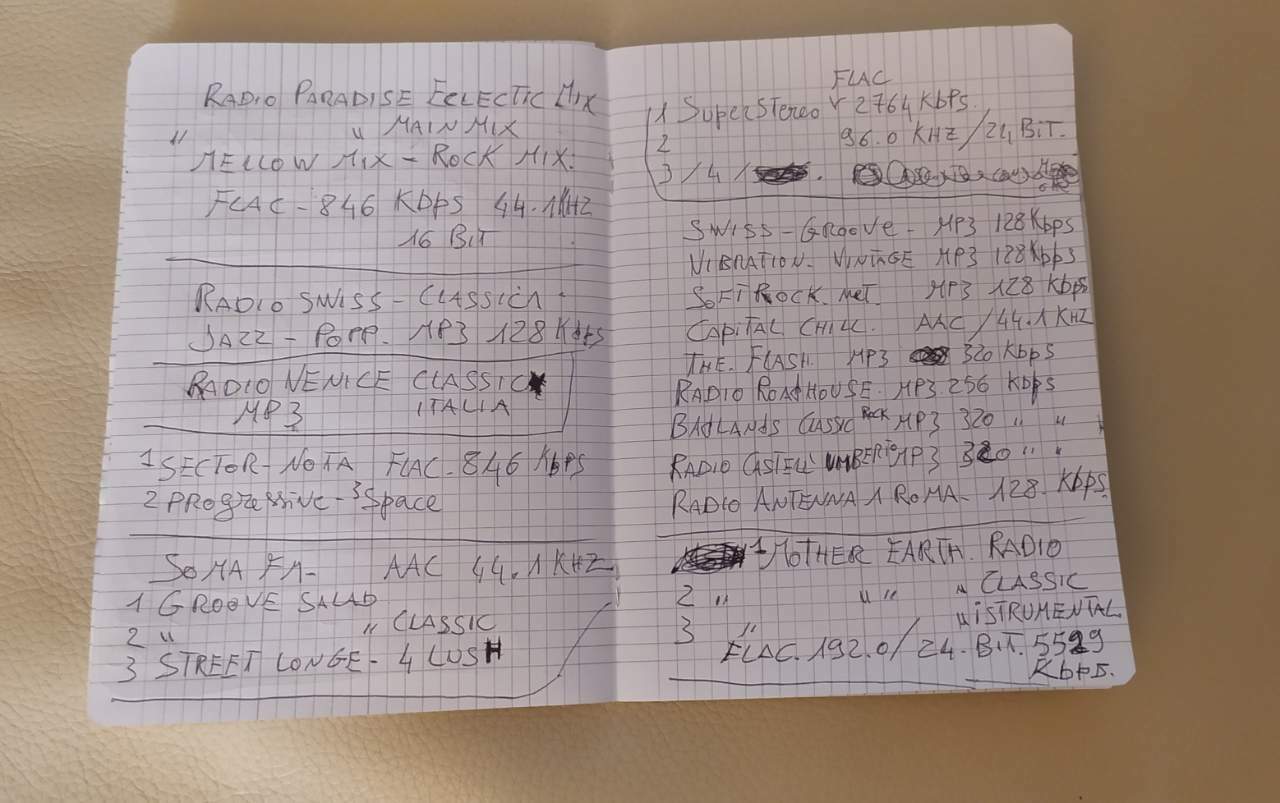 RADIO PARADISE ECLECTIC MIX
" " MAIN MIX
MELLOW MIX - ROCK MIX.
FLAC - 846 Kbps 44.1KHZ
16 BIT
RADIO SWISS - CLASSICA -
JAZZ - POPP. MP3 128 Kbps
RADIO VENICE CLASSIC
MP3 ITALIA
1 SECTOR - NOTA FLAC - 846 Kbps
2 PROgressive - 3 Space
SOMA FM - AAC 44.1KHZ
1 GROOVE SALAD
2 " " CLASSIC
3 STREET LONGE - 4 LUSH
FLAC
1 SuperStereo 2764 Kbps.
2 96.0 KHZ/24 BiT.
3/4/
SWISS - GROOVe - MP3 128 Kbps
VIBRATION. VINTAGE MP3 128 Kbps
SOFTROCK. Net. MP3 128 Kbps
CAPITAL CHILL. AAC/44.1 KHZ
THE. FLASH. MP3 320 Kbps
RADIO ROADHOUSE. MP3. 256 Kbps
BAdLANdS CLASSIC ROCK MP3 320 " "
RADIO CASTELL UMBERTO MP3 320 " "
RADIO ANTENNA 1 ROMA - 128. Kbps
1 MOTHER EARTH. RADIO
2 " " " " CLASSIC
3 " " ISTRUMENTAL
FLAC. 192.0/24. BiT. 5529
Kbps.